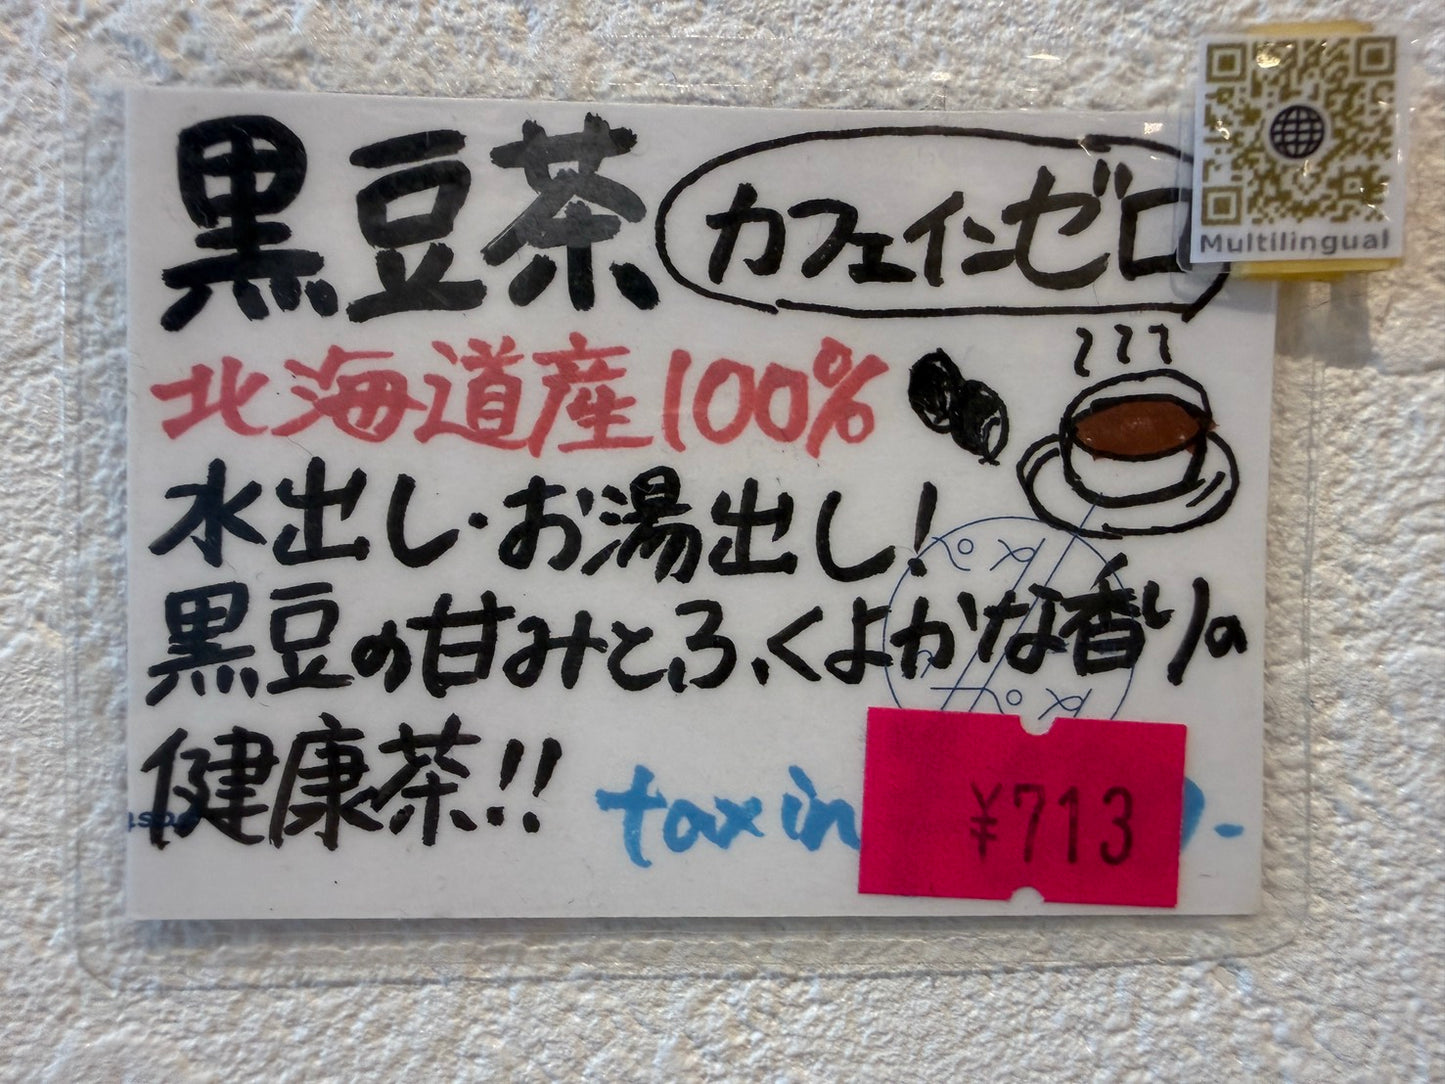 黒豆茶 カフェインゼロ
Multilingual
北海道産100%
水出し・お湯出し!
黒豆の甘みとふくよかな香りの
健康茶!!
tax in
¥713